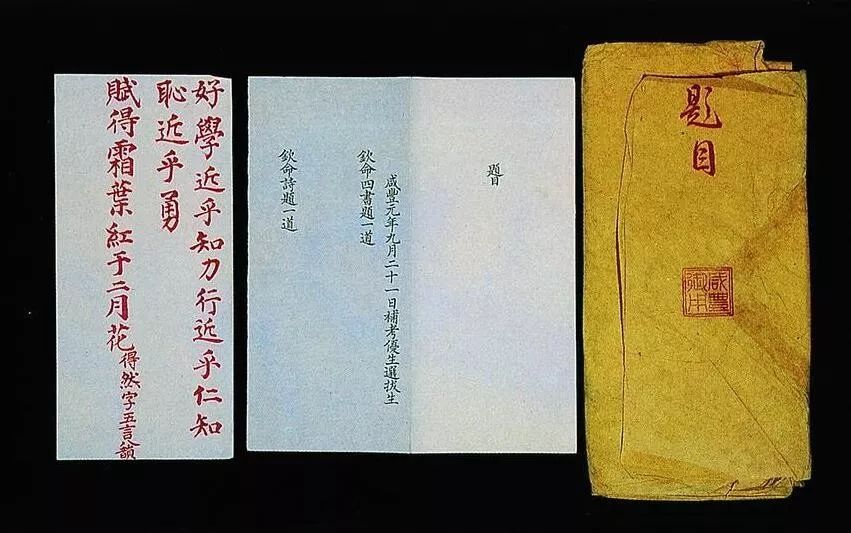 題目
咸豐
御用
題目
咸豐元年九月二十一日補考優生選拔生
欽命四書題一道
欽命詩題一道
好學近乎知力行近乎仁知
恥近乎勇
賦得霜葉紅于二月花得然字五言八韻